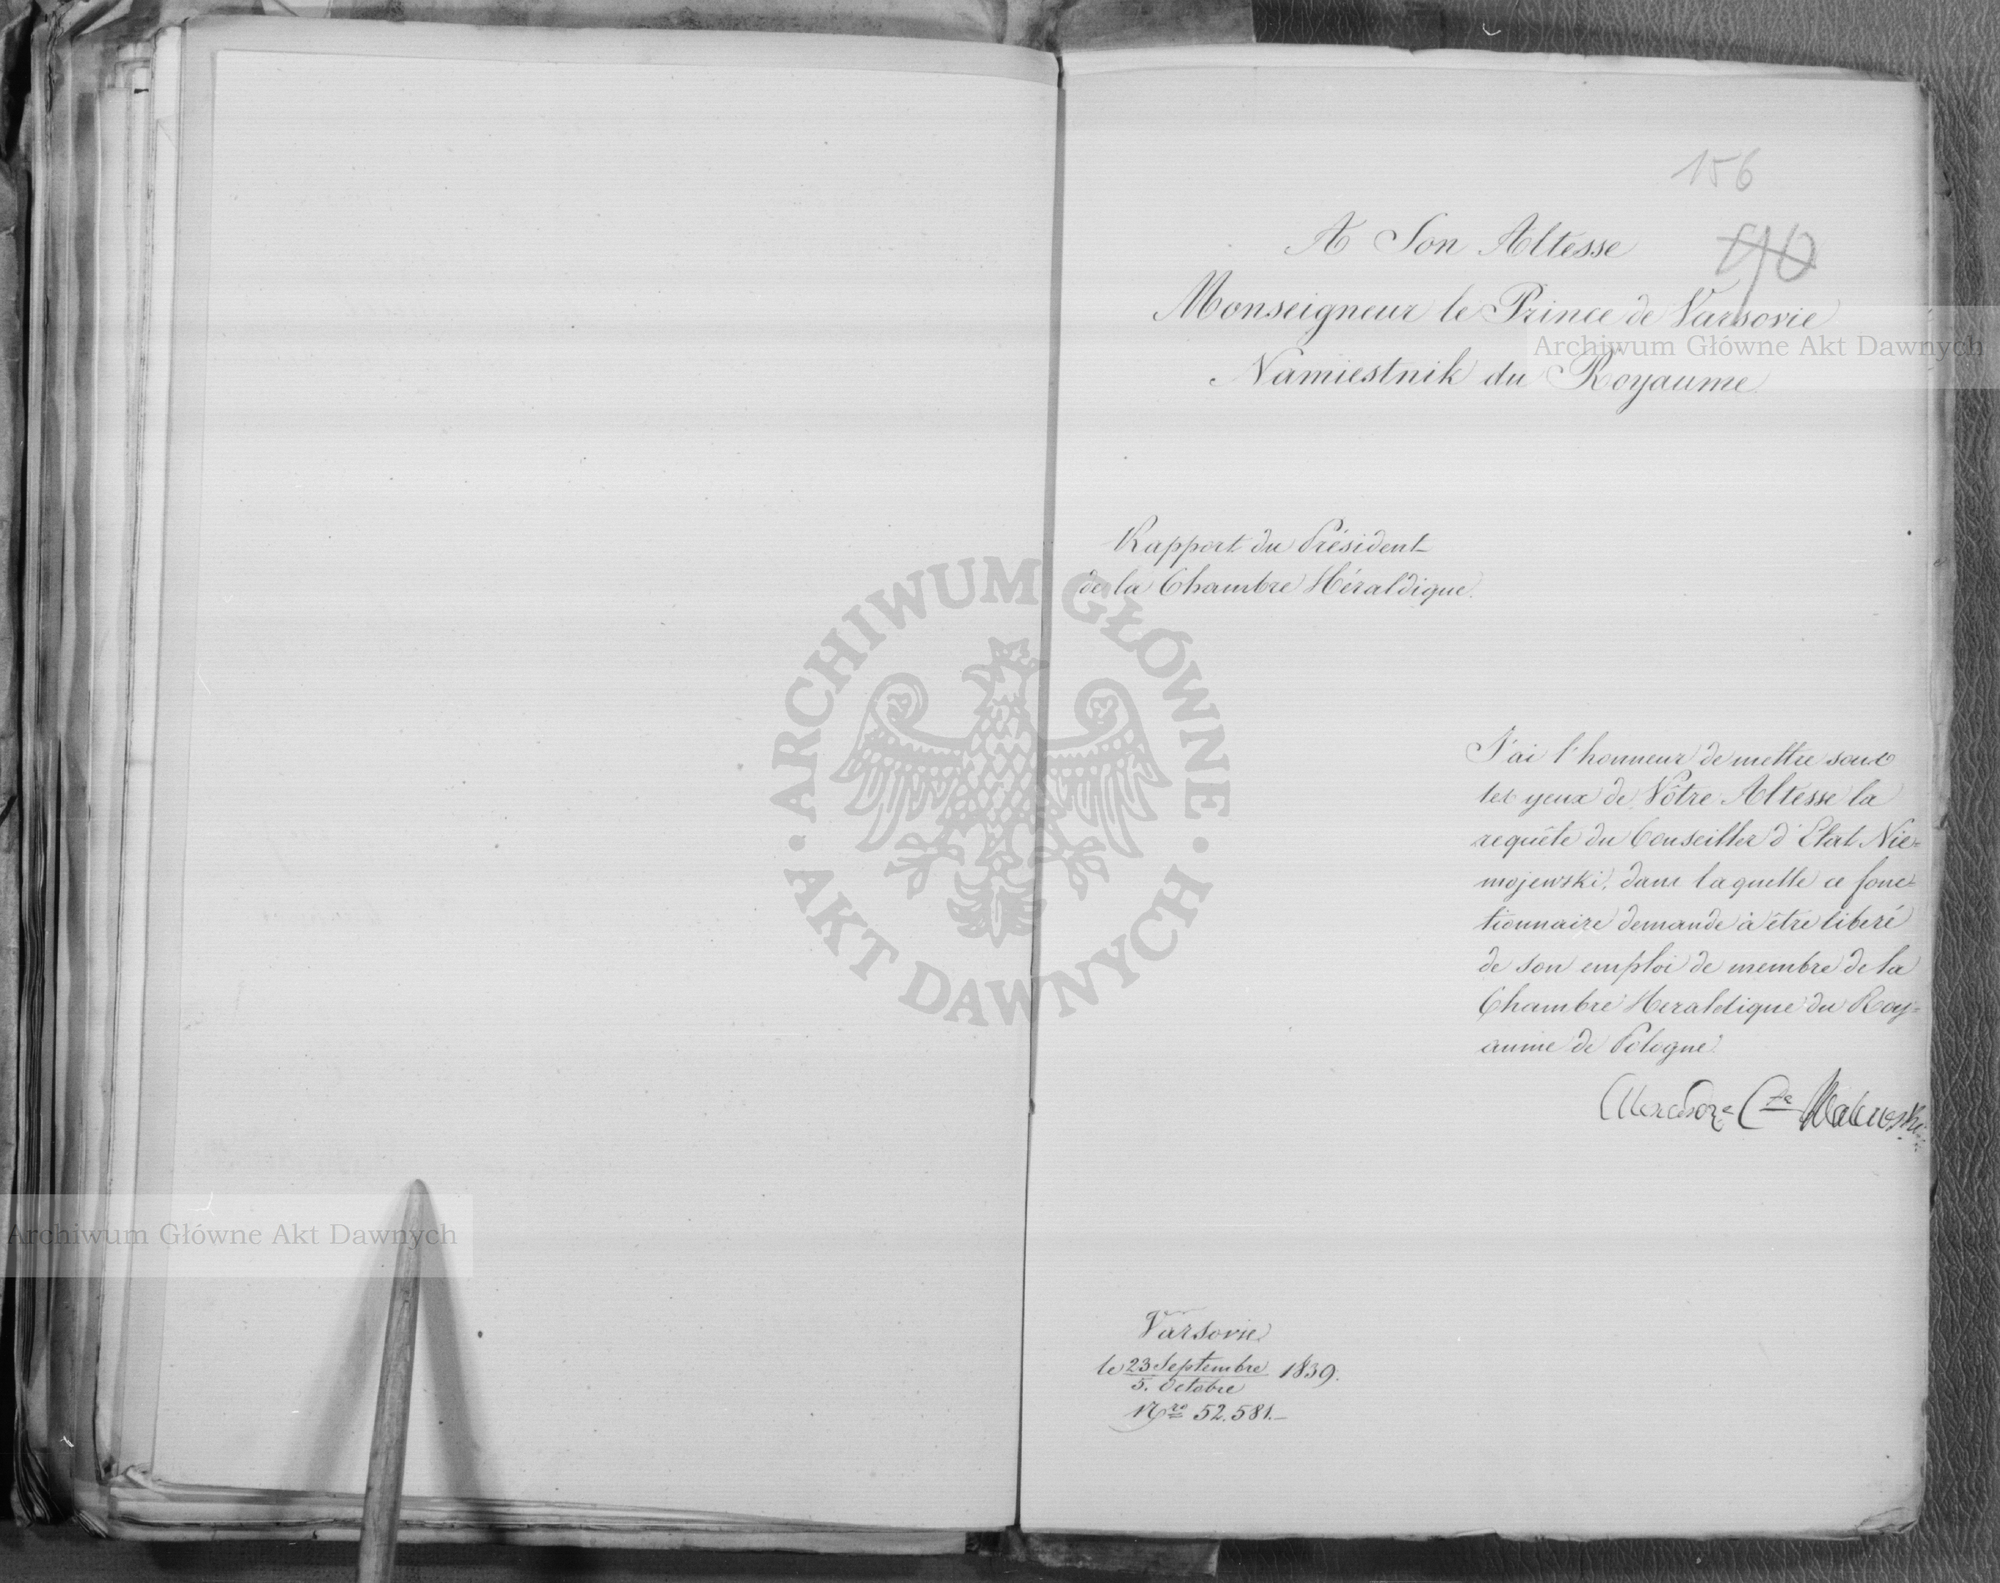 156
90
A Son Altesse
Monseigneur le Prince de Varsovie
Archiwum Główne Akt Dawnych
Namiestnik du Royaume.
Rapport du Président
de la Chambre Héraldique.
ARCHIWUM GŁÓWNE · AKT DAWNYCH ·
J'ai l'honneur de mettre sous
les yeux de Vôtre Altesse la
requête du Conseiller d'Etat Nie=
mojewski, dans laquelle ce fonc=
tionnaire demande à être liberé
de son emploi de membre de la
Chambre Heraldique du Roy=
aume de Pologne.
Alexandre Cte
Archiwum Główne Akt Dawnych
Varsovie
le 23 Septembre / 5. Octobre 1839.
Nro 52.581.